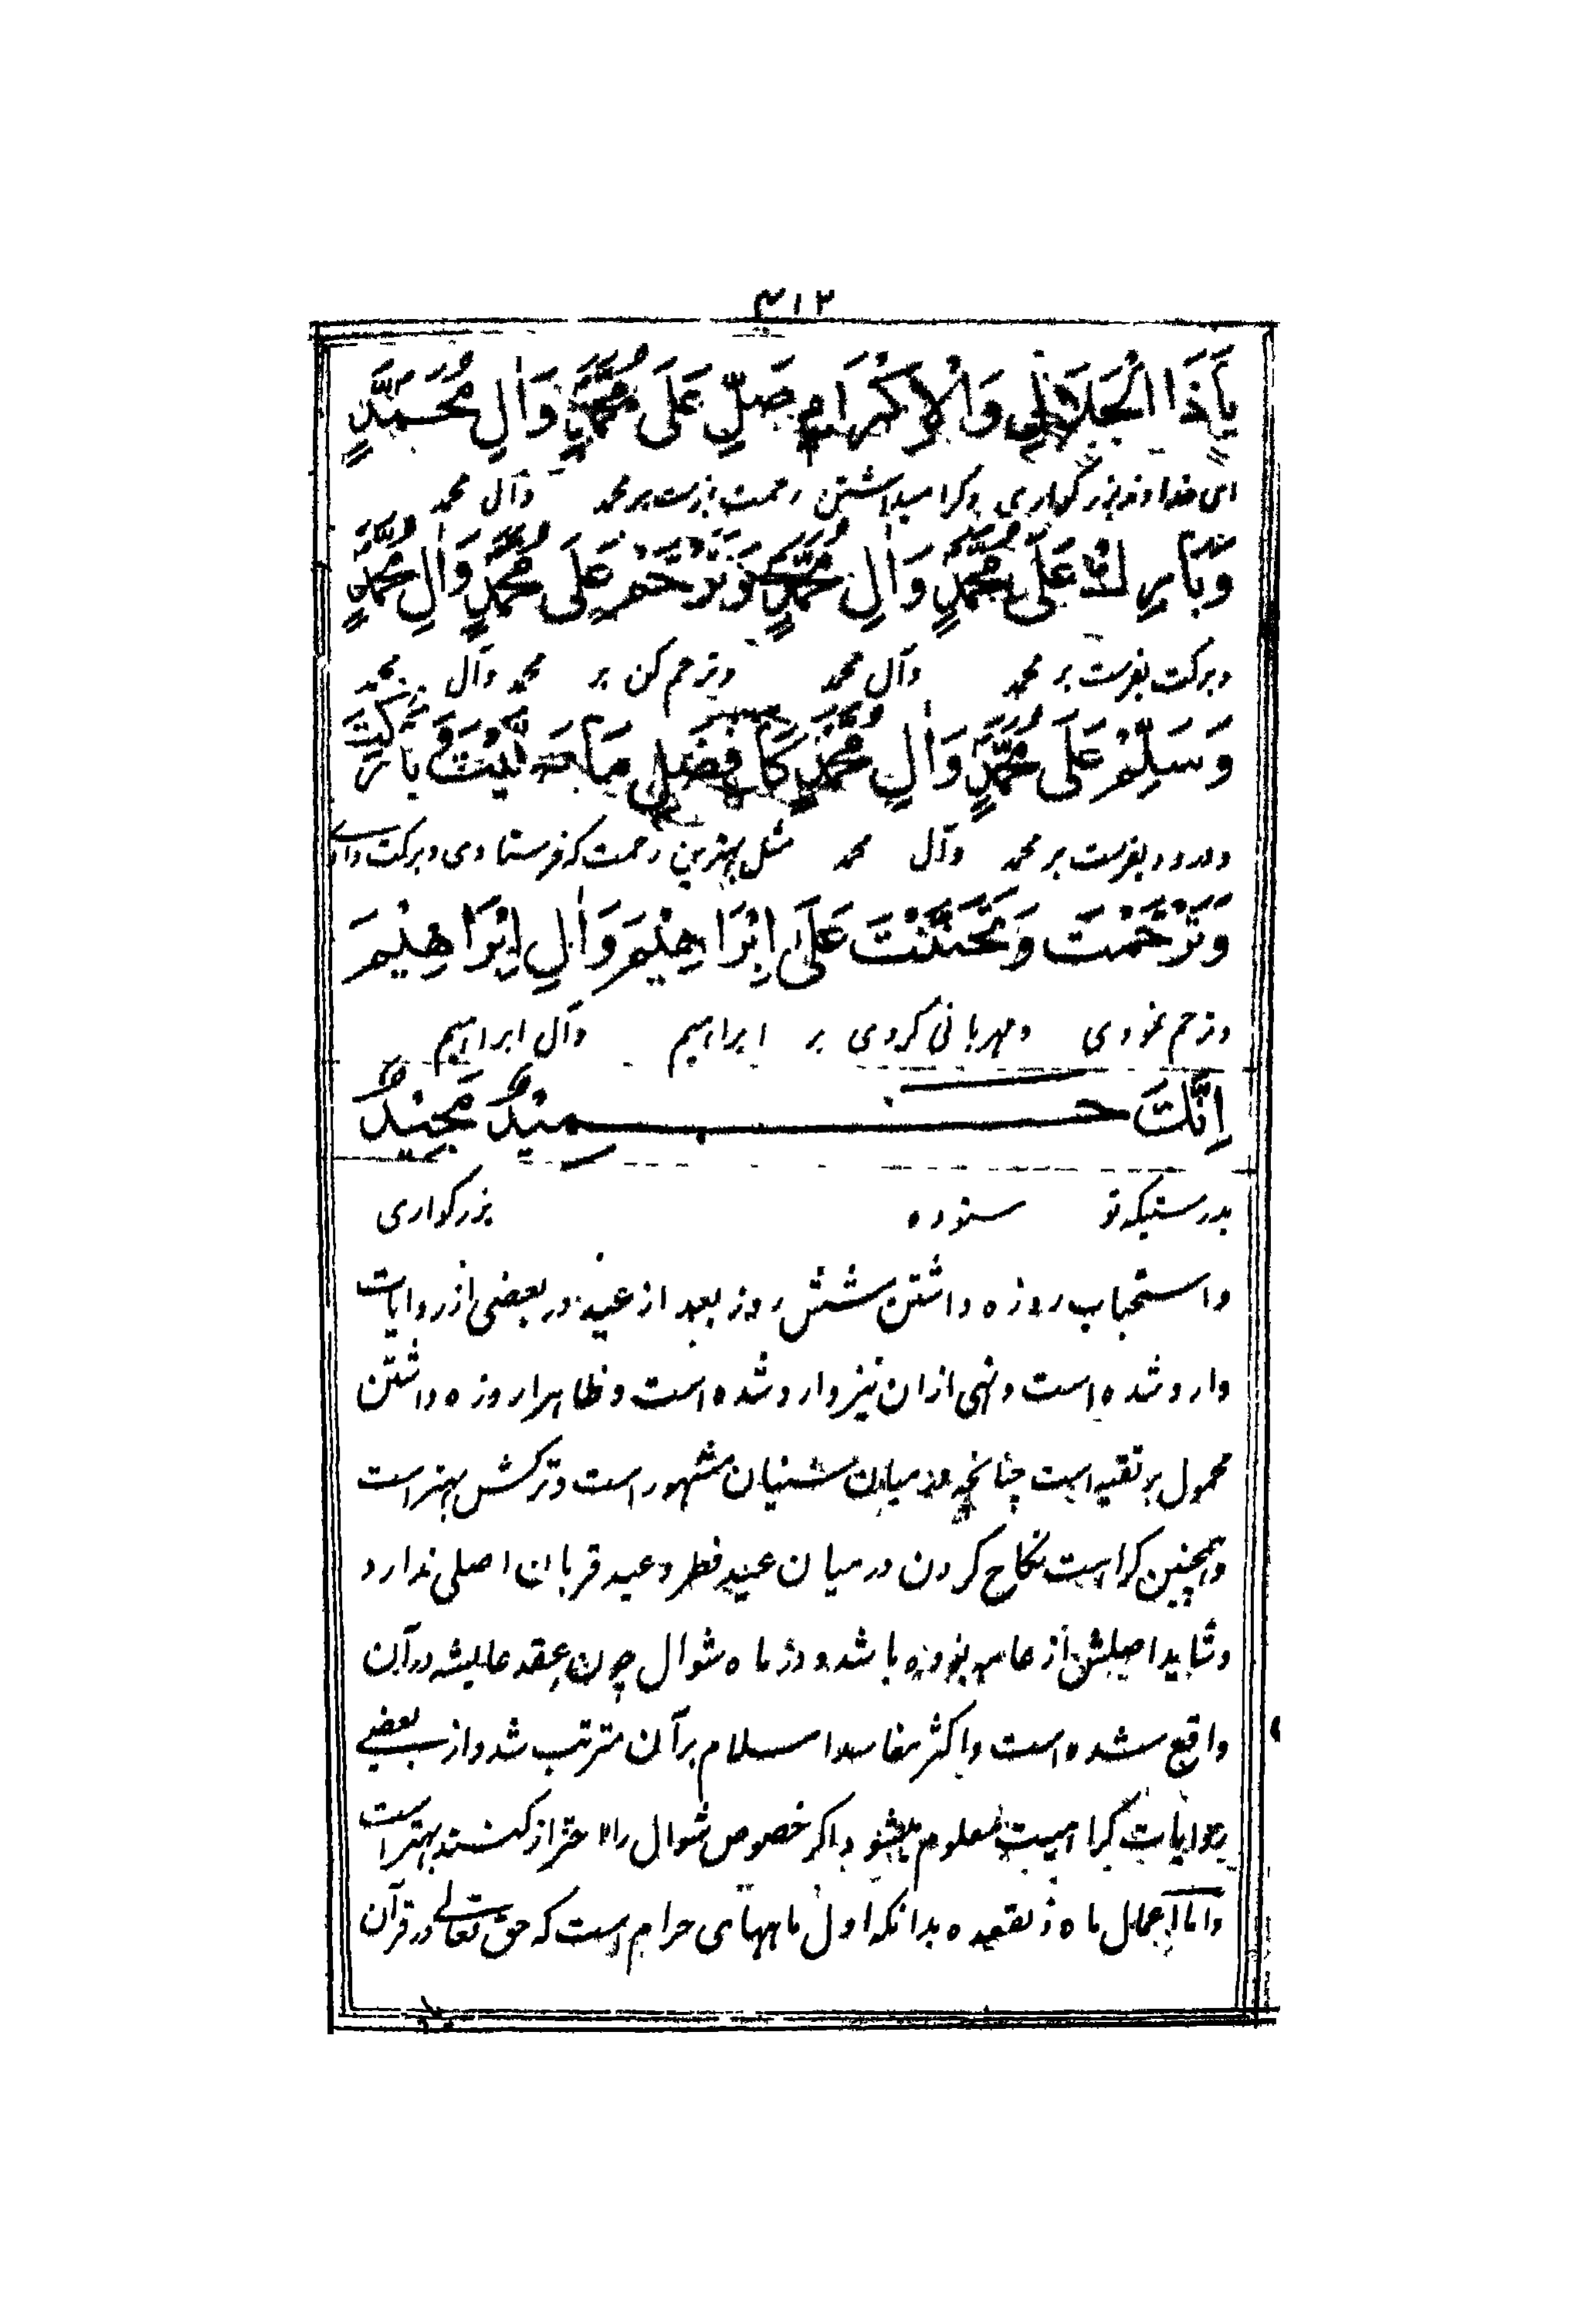 ۳۱۲
يَا ذَا الْجَلَالِ وَالْاِكْرَامِ صَلِّ عَلَى مُحَمَّدٍ وَاٰلِ مُحَمَّدٍ
ای خداوند بزرگواری وکرامیداشتن رحمت بفرست بر محمد وآل محمد
وَبَارِكْ عَلَى مُحَمَّدٍ وَاٰلِ مُحَمَّدٍ وَتَرَحَّمْ عَلَى مُحَمَّدٍ وَاٰلِ مُحَمَّدٍ
وبرکت بفرست بر محمد وآل محمد وترحم کن بر محمد وآل محمد
وَسَلِّمْ عَلَى مُحَمَّدٍ وَاٰلِ مُحَمَّدٍ كَاَفْضَلِ مَا صَلَّيْتَ وَبَارَكْتَ
ودرود بفرست بر محمد وآل محمد مثل بهترین رحمت که فرستادی وبرکت دادے
وَتَرَحَّمْتَ وَتَحَنَّنْتَ عَلَى اِبْرَاهِيْمَ وَاٰلِ اِبْرَاهِيْمَ
وترحم نمودی ومهربانی کردی بر ابراهیم وآل ابراهیم
اِنَّكَ حَمِيْدٌ مَجِيْدٌ
بدرستیکه تو ستوده بزرکواری
واستحباب روزه داشتن شش روز بعد از عید در بعضی از روایات
وارد شده است ونهی ازان نیز وارد شده است وظاهرا روزه داشتن
محمول بر تقیه است چنانچه در میان سنیان مشهور است وترکش بهتر است
وهمچنین کراهت نکاح کردن در میان عید فطر وعید قربان اصلی ندارد
وشاید اصلش از عامه بوده باشد ودر ماه شوال چون عقد عایشه در آن
واقع شده است واکثر مفاسد اسلام بر آن مترتب شد واز بعضے
روایات کراهیت معلوم میشود واکر خصوص شوال را احتراز کنند بهتر است
واما اعمال ماه ذیقعده بدانکه اول ماههای حرام است که حق تعالے در قرآن